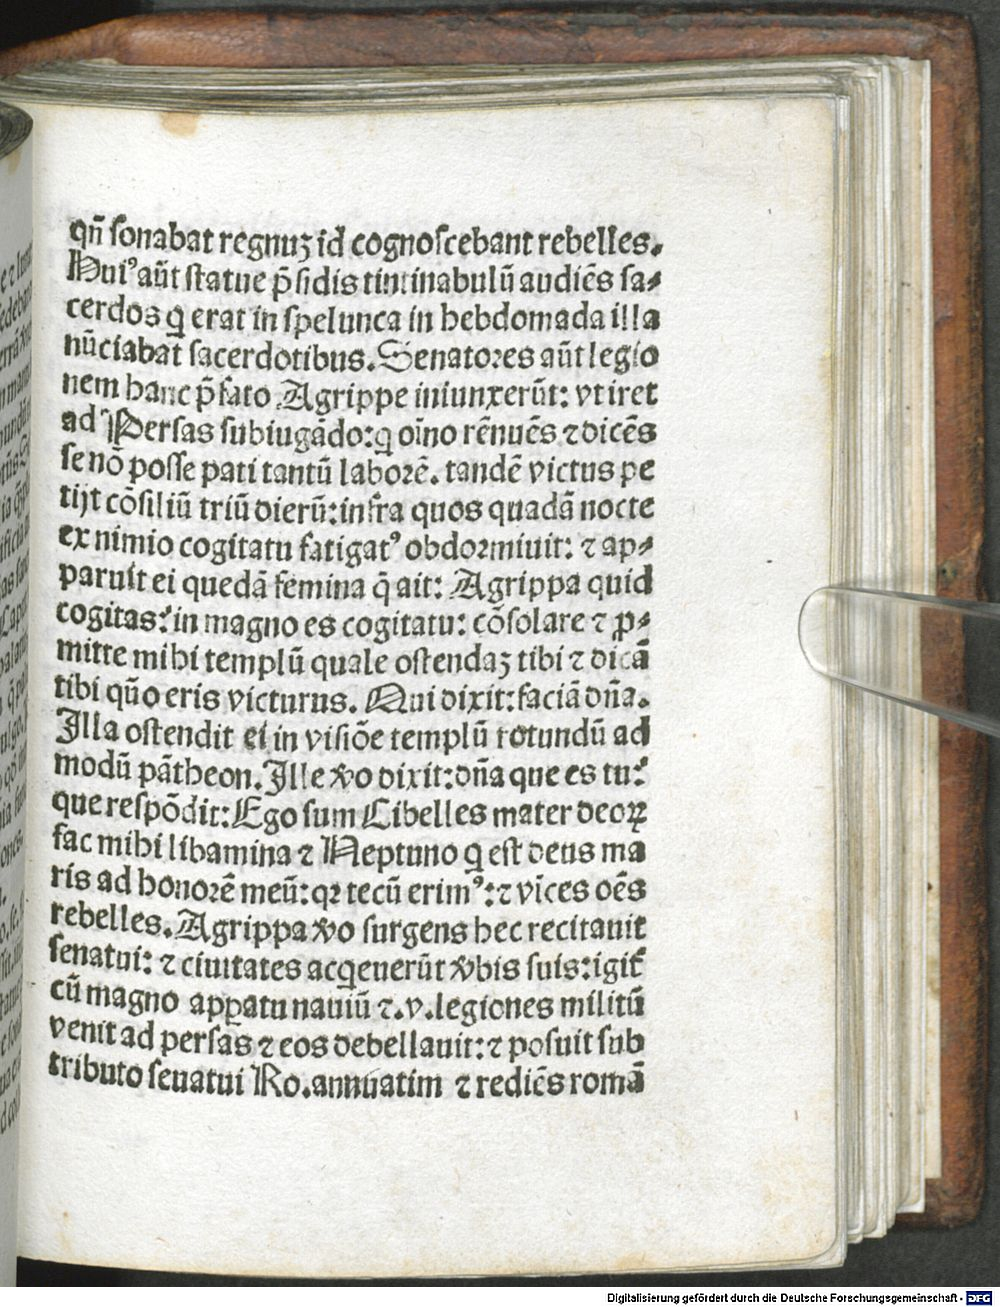 qñ sonabat regnuꝫ id cognoscebant rebelles.
Huiꝰ aūt statue p̄sidis tintinabulū audiēs sa⸗
cerdos q̇ erat in spelunca in hebdomada illa
nūciabat sacerdotibus. Senatores aūt legio
nem hanc p̄fato Agrippe iniunxerūt: vt iret
ad Persas subiugādo: q̇ oīno rēnuēs ⁊ dicēs
se nō posse pati tantū laborē. tandē victus pe
tijt cōsiliū triū dierū: infra quos quadā nocte
ex nimio cogitatu fatigatꝰ obdormiuit: ⁊ ap⸗
paruit ei quedā femina q̄ ait: Agrippa quid
cogitas? in magno es cogitatu: cōsolare ⁊ ꝓ⸗
mitte mihi templū quale ostendaꝫ tibi ⁊ dicā
tibi quō eris victurus. Qui dixit: faciā dña.
Illa ostendit ei in visiōe templū rotundū ad
modū pātheon. Ille v̄o dixit: dña que es tu?
que respōdit: Ego sum Cibelles mater deoꝝ
fac mihi libamina ⁊ Neptuno q̇ est deus ma
ris ad honorē meū: qꝛ tecū erimꝰ: ⁊ vīces oēs
rebelles. Agrippa v̄o surgens hec recitauit
senatui: ⁊ ciuitates acq̇euerūt v̄bis suis: igit᷑
cū magno apꝑatu nauiū ⁊ .v. legiones militū
venit ad persas ⁊ eos debellauit: ⁊ posuit sub
tributo seuatui Ro. annuatim ⁊ rediēs romā
Digitalisierung gefördert durch die Deutsche Forschungsgemeinschaft - DFG